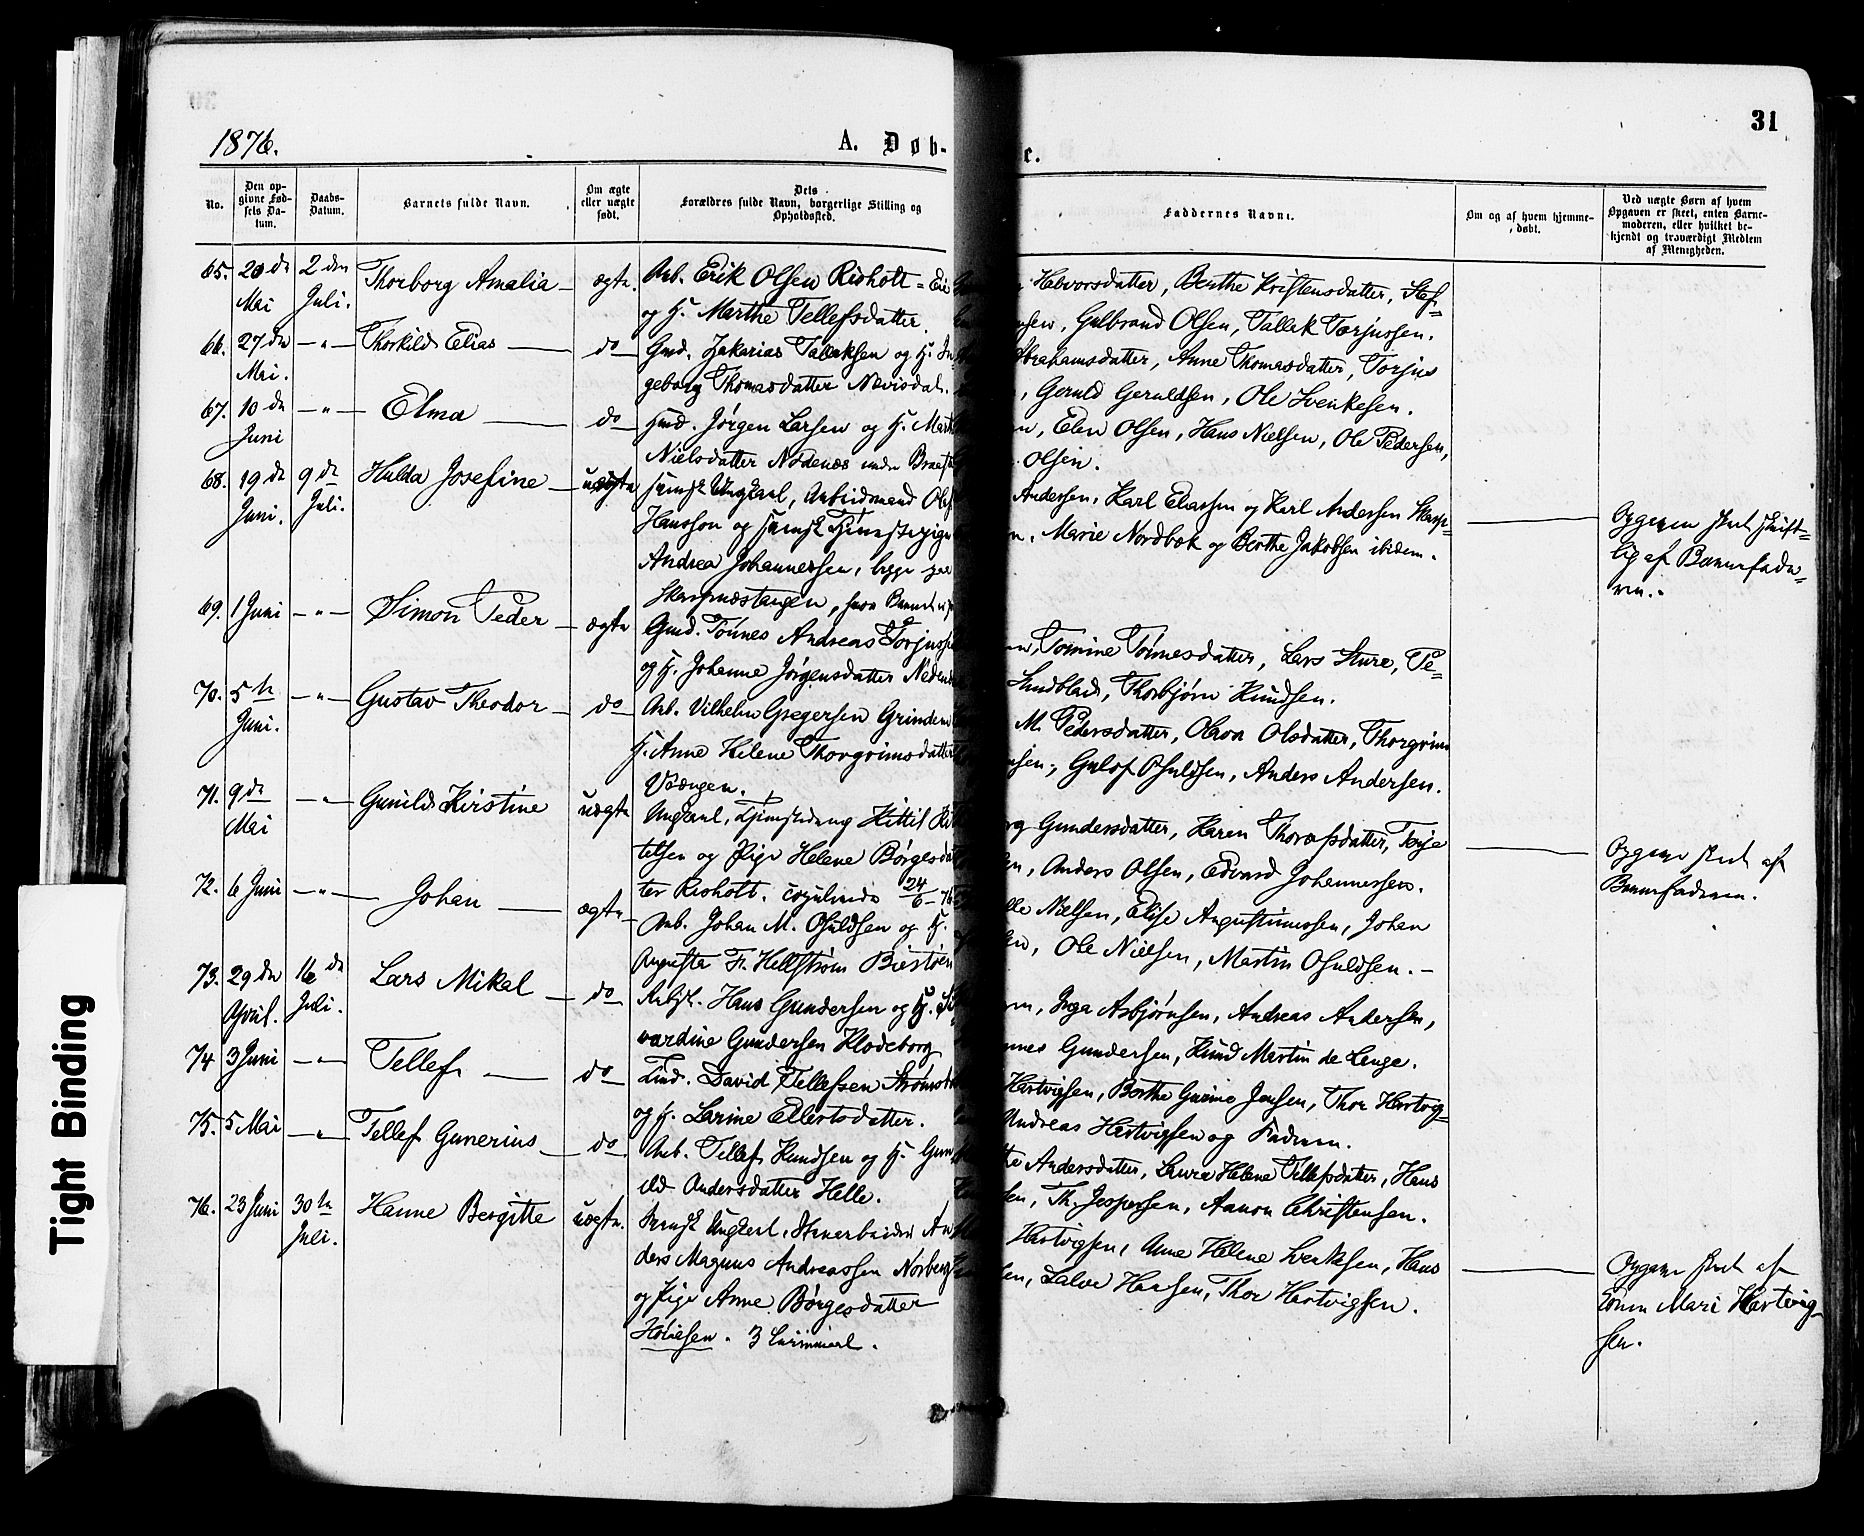 31
1876.
A. Døb-
e.
No.
Den op-
givne Fød-
sels Da-
tum.
Daabs-
Datum.
Barnets fulde Navn.
Om ægte
eller uægte
født.
Dets
Forældres fulde Navn, borgerlige Stilling og
Opholdssted.
Faddernes Navne.
Om og af hvem hjemme-
døbt.
Ved uægte Børn af hvem
Opgaven er skeet, enten Barne-
moderen, eller hvilket be-
kjendt og troværdigt Medlem
af Menigheden.
65. 20 de Mai 2 den Juli. Thorborg Amalia — ægte. Arb. Erik Olsen Risholt
og H. Marthe Tellefsdatter.
Halvorsdatter, Berthe Kristensdatter, Stef-
sen, Gulbrand Olsen, Tallek Torjussen.
66. 27 de Mai. — " — Thorkild Elias — do Gmd. Zakarias Tallaksen og H. In-
geborg Thomasdatter Nævisdal.
Abrahamsdatter, Anne Thomasdatter, Torjus
, Gerald Geruldsen, Ole Svenkesen.
67. 10 de Juni — " — Elma — do Hmd. Jørgen Larsen og H. Mart
Nielsdatter Nødenæs under
n, Elen Olsen, Hans Nielsen, Ole Pedersen,
Olsen.
68. 19 de Juni. 9 de Juli. Hulda Josefine — uægte svensk Ungkarl, Arbeidsmand Olof
Hansson og svensk Tjenestepige
Andrea Johannessen, begge paa
Skarpnæstangen, hvor Barnet
Andersen, Karl Eliassen og Karl Andersen Skarp-
n, Marie Nordbøk og Berthe Jakobsen ibidem.
Opgaven skeet skrift-
lig af Barnefade-
ren.
69. 1 Juni — " — Simon Peder — ægte Gmd. Tønnes Andreas Torjussen
og H. Johanne Jørgensdatter Neden
en, Tomine Tønnesdatter, Lars Sture, Pe-
Sundblad, Thorbjørn Knudsen.
70. 5 te Juni. — " — Gustav Theodor — do Arb. Vilhelm Gregersen Grindem
H. Anne Helene Thorgrimsdatter
Vængen.
M. Pedersdatter, Olava Olsdatter, Thorgrim
nsen, Gulof Osuldsen, Anders Andersen.
71. 9 de Mai — " — Gunild Kirstine uægte Ungkarl, Tjenestedreng Kittil Kit
telsen og Pige Helene Børgesdat
ter Risholt. copulerede 24/6 – 76
rg Gundersdatter, Karen Thorafsdatter, Terje
en, Anders Olsen, Edvard Johannessen.
Opgave skeet af
Barnefaderen.
72. 6 Juni — " — Johan — ægte Arb. Johan M. Osuldsen og H.
Augusta Fr. Hellstrøm Biestøen
lle Nielsen, Elise Augustinussen, Johan
en, Ole Nielsen, Martin Osuldsen. –
73. 29 de April. 16 de Juli. Lars Mikal — do Arbst. Hans Gundersen og H. Si
vardine Gundersen Klodeborg
en, Inga Asbjørnsen, Andreas Andersen,
nnes Gundersen, Knud Martin de Lange.
74 3 Juni — " — Tellef — do Tmd. David Tellefsen Strømsb
og H. Larine Ellertsdatter.
Hartvigsen, Berthe Gurine Jensen, Thor Hartvig-
Andreas Hartvigsen og Faderen.
75. 5 Mai — " — Tellef Gunerius — do Arb. Tellef Knudsen og H. Gun
ild Andersdatter Helle.
te Andersdatter, Laura Helene Tellefsdatter, Hans
sen, Th. Jespersen, Aanon Christensen.
76. 23 Juni 30 te Juli. Hanne Bergitte uægte. Svensk Ungkarl, Stenarbeider An
ders Magnus Andreassen Norberg
og Pige Anne Børgesdatter
Høiesen. 3
Hartvigsen, Anne Helene Svenkesen, Hans
sen, Salve Hansen, Thor Hartvigsen.
Opgave skeet af
Konen Mari Hartvig-
sen.
Tight Binding